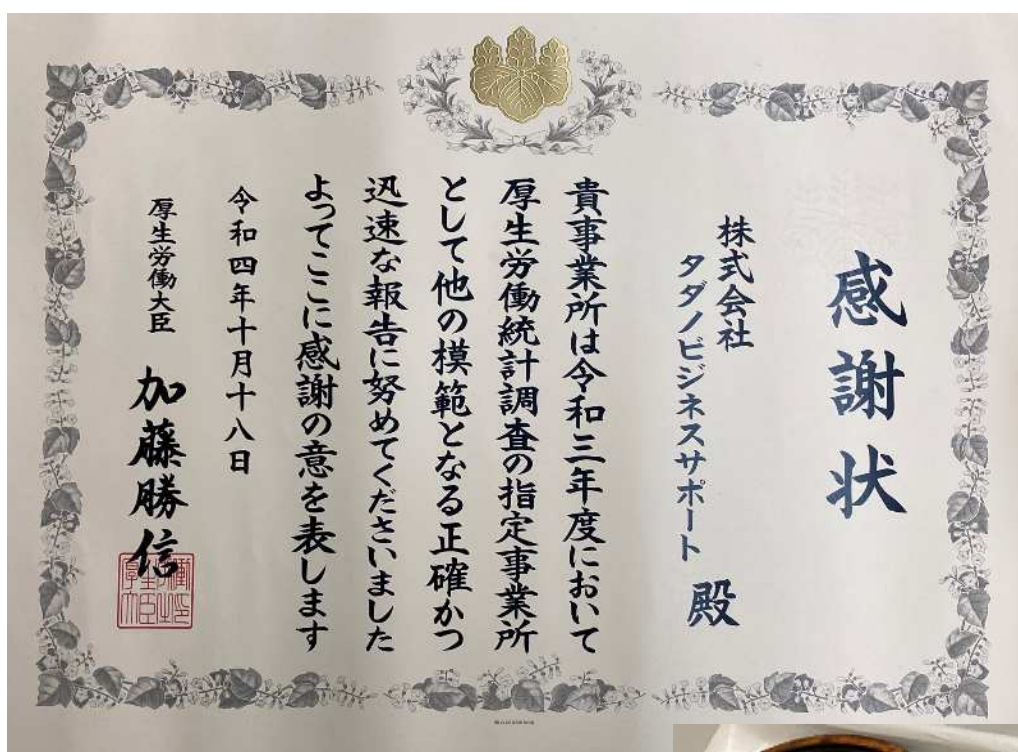 感謝状
株式会社
タダノビジネスサポート 殿
貴事業所は令和三年度において
厚生労働統計調査の指定事業所
として他の模範となる正確かつ
迅速な報告に努めてくださいました
よってここに感謝の意を表します
令和四年十月十八日
厚生労働大臣 加藤勝信